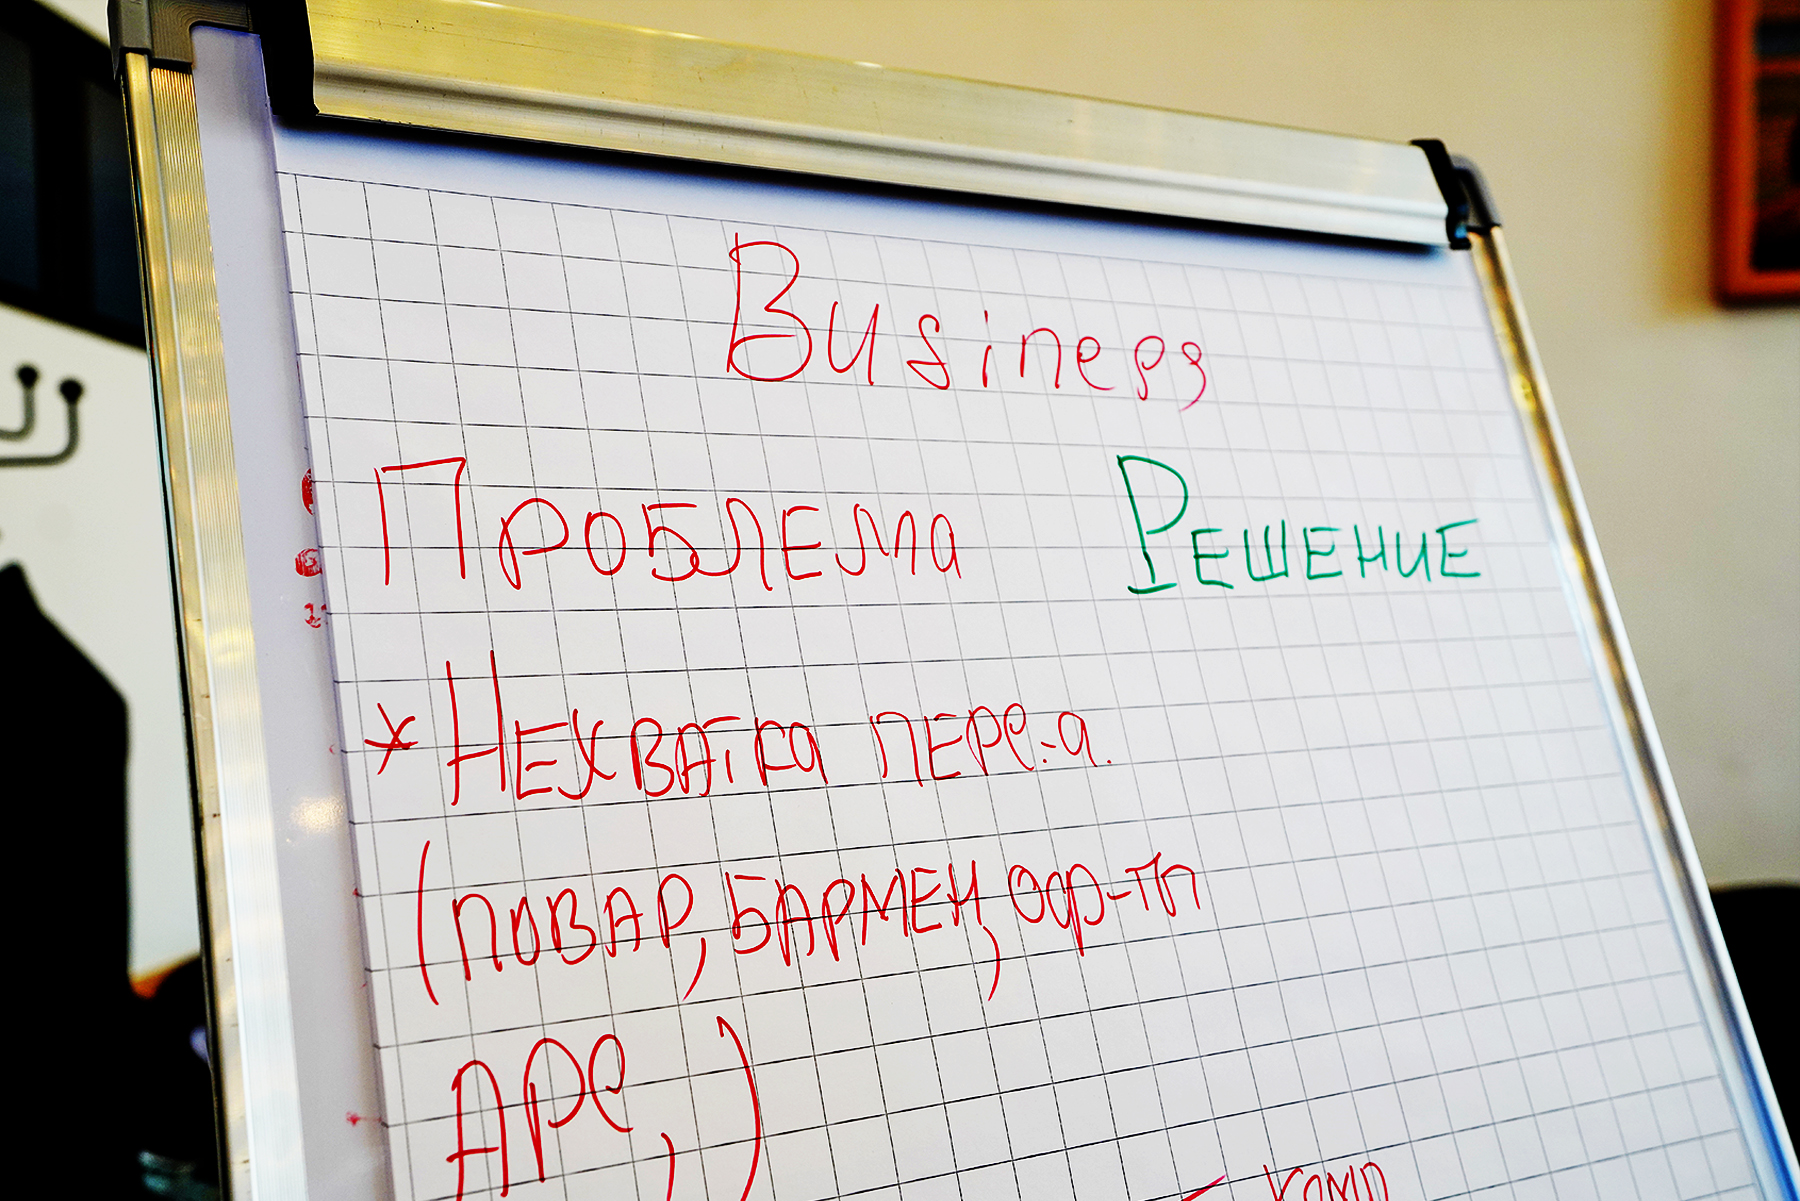 Business
Проблема Решение
* Нехватка перс-а.
(повар, бармен, оф-тп
АРС, )
- комп